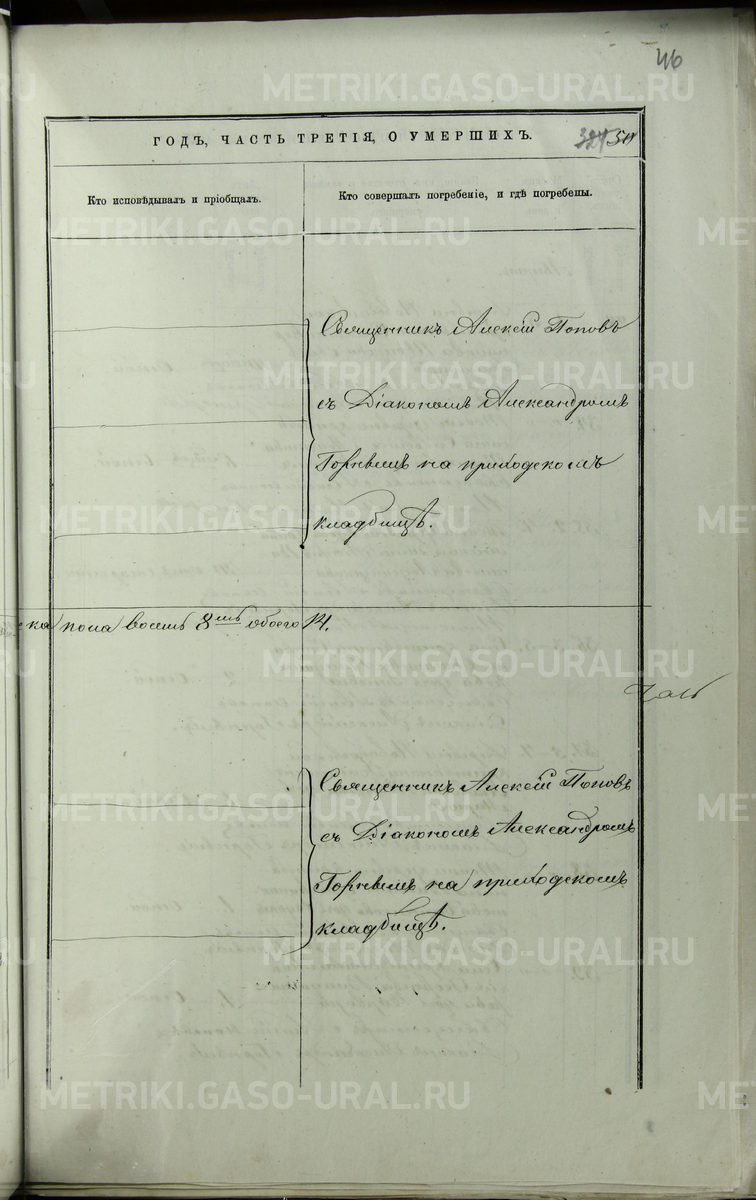 46
ГОДЪ, ЧАСТЬ ТРЕТІЯ, О УМЕРШИХЪ.
Кто исповѣдывалъ и пріобщалъ.
Кто совершалъ погребеніе, и гдѣ погребены.
Священникъ Алексѣй Поповъ
съ Діакономъ Александромъ
на приходскомъ
кладбищѣ.
ка пола восемь 8мь обоего 14.
Священникъ Алексѣй Поповъ
съ Діакономъ Александромъ
на приходскомъ
кладбищѣ.
METRIKI.GASO-URAL.RU